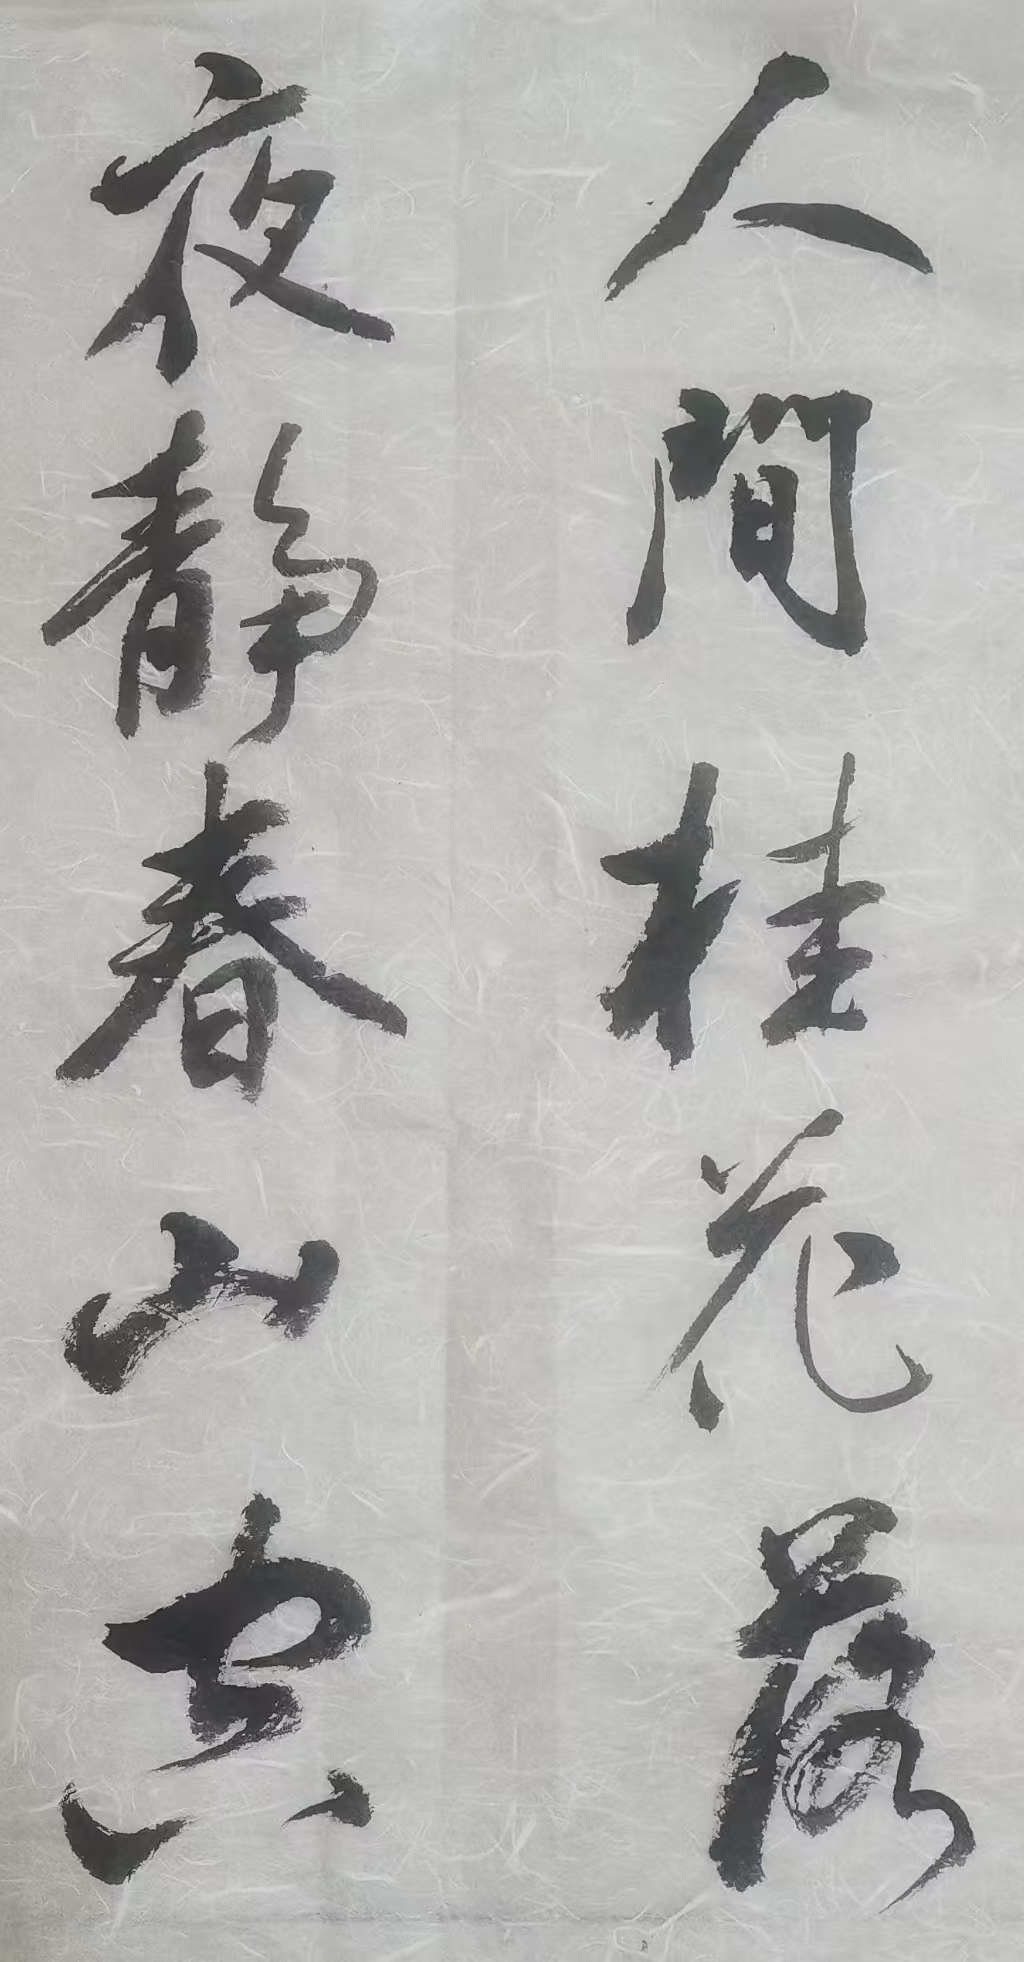 人間桂花落
夜静春山空